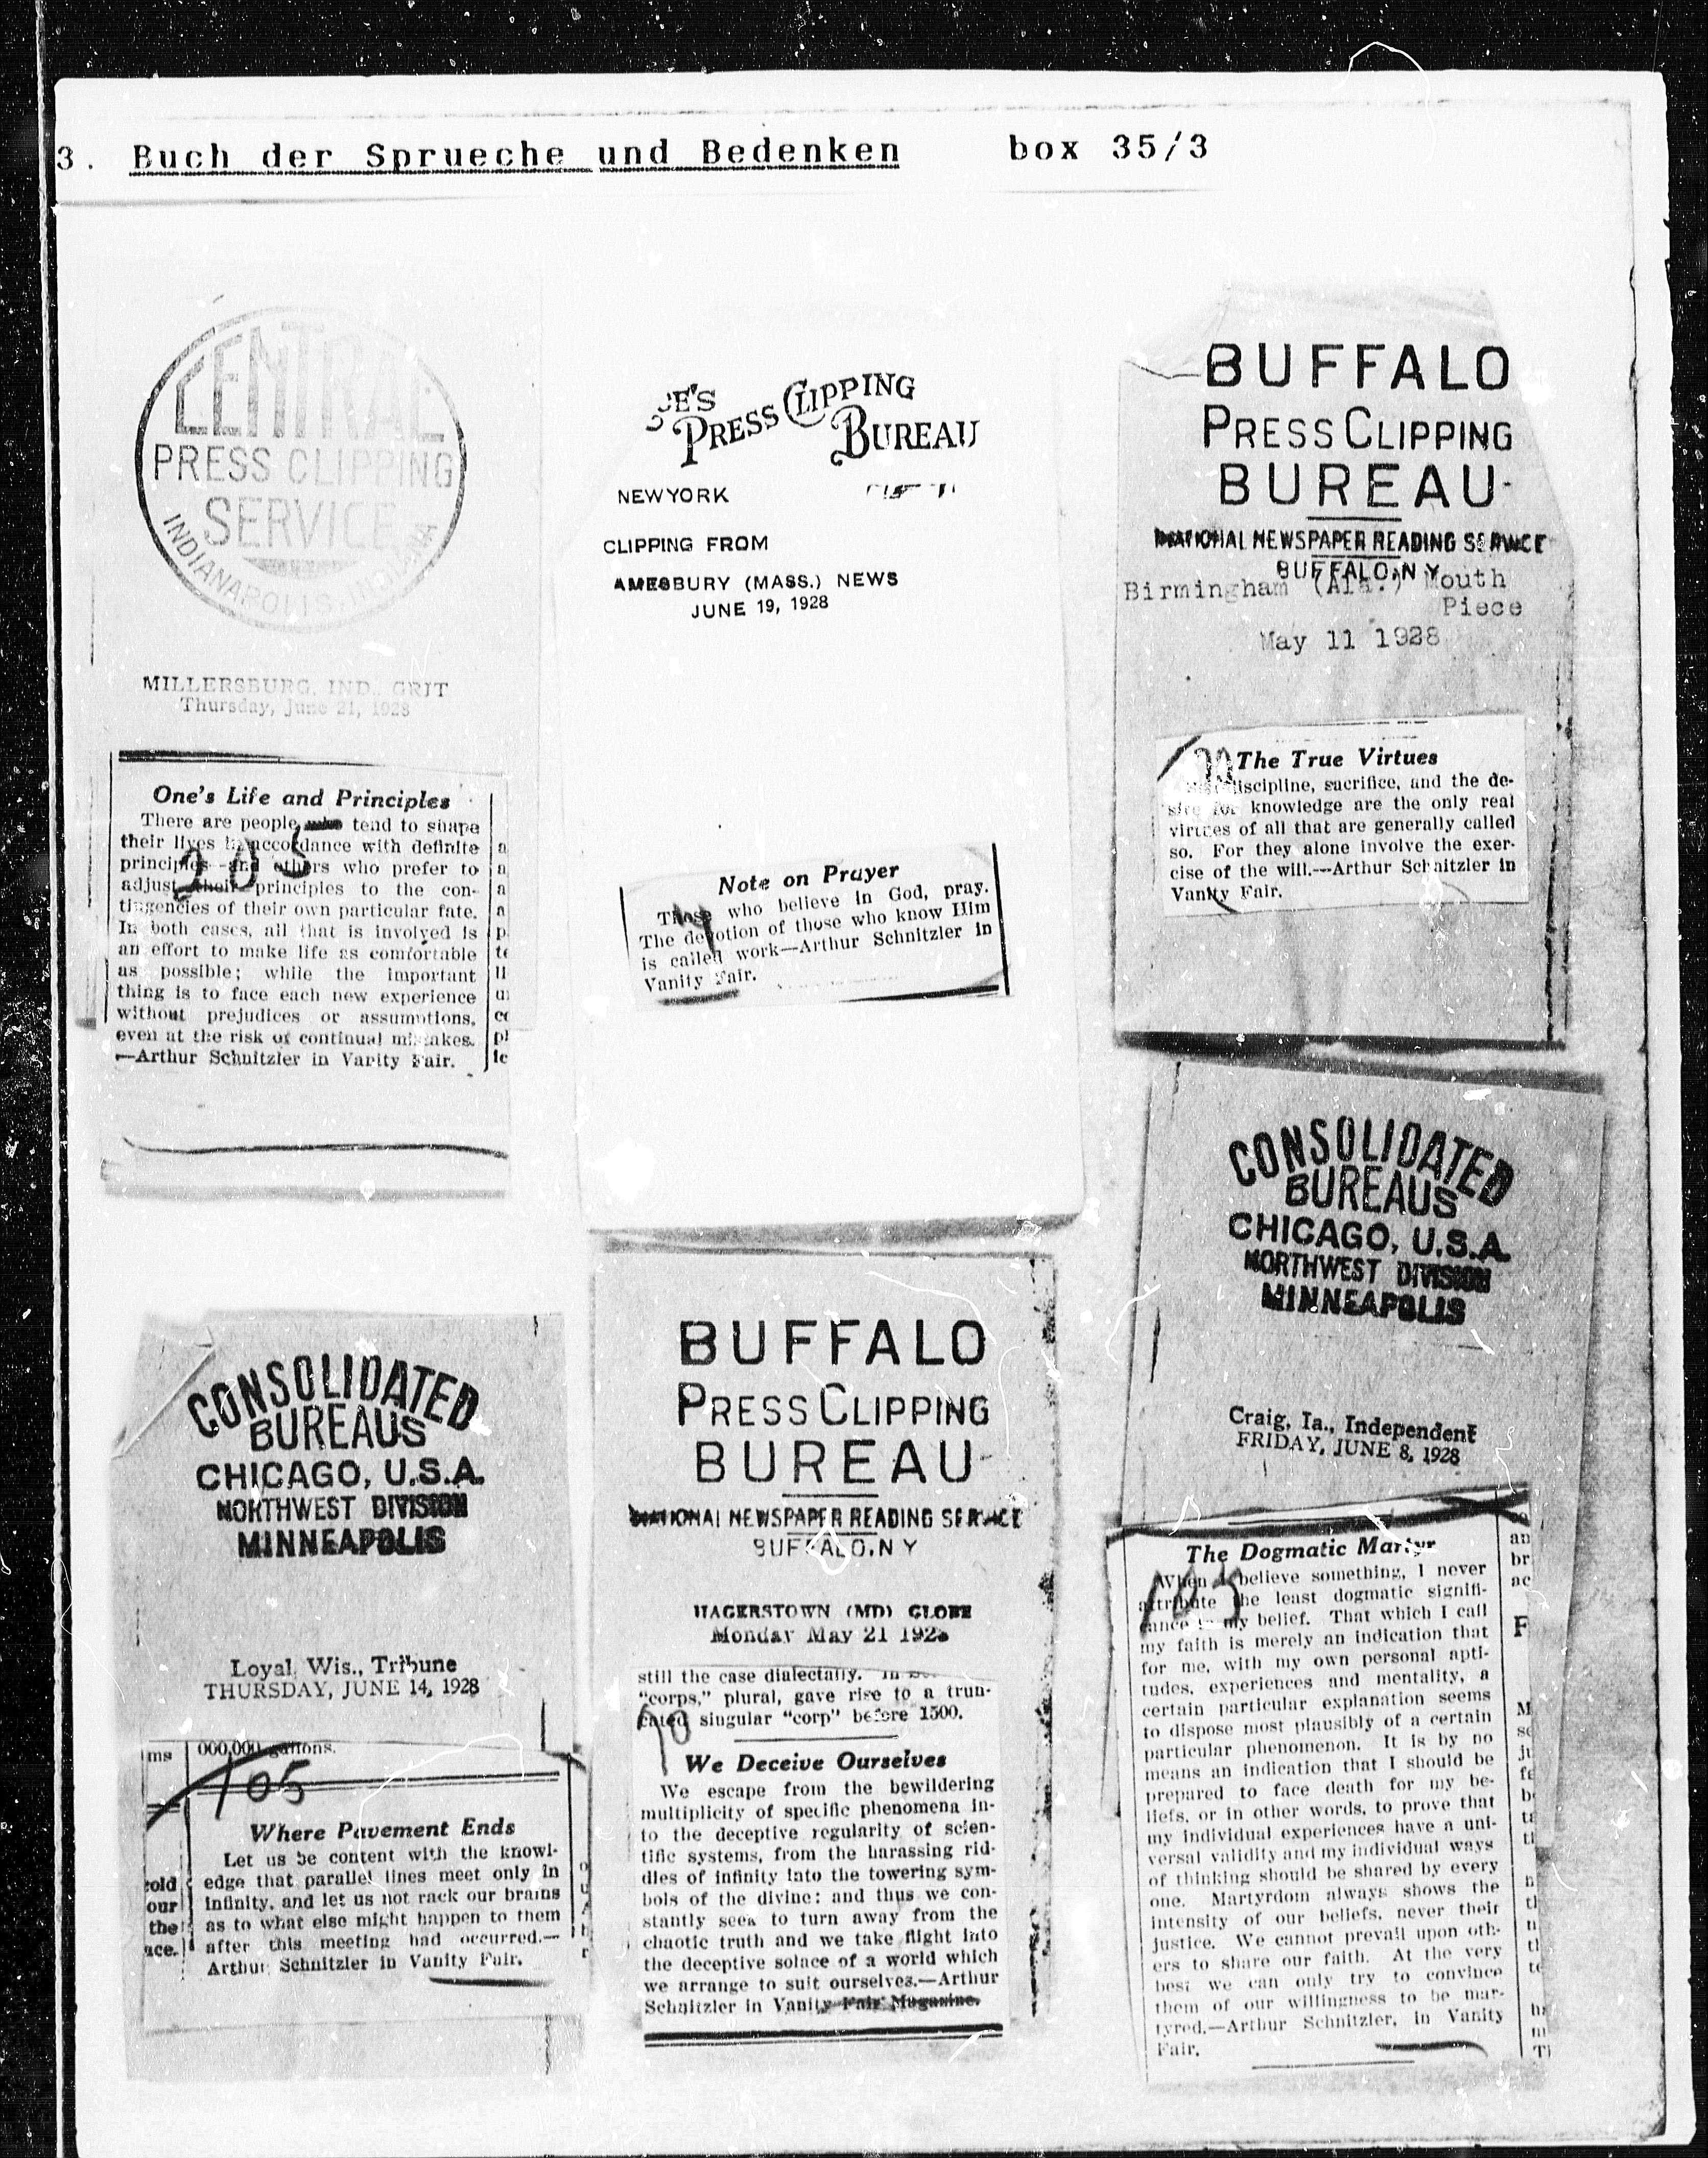 3. Buch der Sprueche und Bedenken box 35/3
CENTRAL
PRESS CLIPPING
SERVICE
INDIANAPOLIS INDIANA
MILLERSBURG, IND., GRIT
Thursday, June 21, 1928
One's Life and Principles
There are people who tend to shape
their lives in accordance with definite
principles and others who prefer to
adjust their principles to the con-
tingencies of their own particular fate.
In both cases, all that is involved is
an effort to make life as comfortable
as possible; while the important
thing is to face each new experience
without prejudices or assumptions,
even at the risk of continual mistakes.
—Arthur Schnitzler in Vanity Fair.
205
CE'S
PRESS CLIPPING
BUREAU
NEW YORK
CLIPPING FROM
AMESBURY (MASS.) NEWS
JUNE 19, 1928
Note on Prayer
Those who believe in God, pray.
The devotion of those who know Him
is called work—Arthur Schnitzler in
Vanity Fair.
BUFFALO
PRESS CLIPPING
BUREAU
NATIONAL NEWSPAPER READING SERVICE
BUFFALO, N Y
Birmingham (Ala.) Mouth
Piece
May 11 1928
The True Virtues
discipline, sacrifice, and the de-
sire for knowledge are the only real
virtues of all that are generally called
so. For they alone involve the exer-
cise of the will.—Arthur Schnitzler in
Vanity Fair.
CONSOLIDATED
BUREAUS
CHICAGO, U.S.A.
NORTHWEST DIVISION
MINNEAPOLIS
Loyal, Wis., Tribune
THURSDAY, JUNE 14, 1928
ms 000,000 gallons.
105
Where Pavement Ends
Let us be content with the knowl-
edge that parallel lines meet only in
infinity, and let us not rack our brains
as to what else might happen to them
after this meeting had occurred.—
Arthur Schnitzler in Vanity Fair.
our
the
BUFFALO
PRESS CLIPPING
BUREAU
NATIONAL NEWSPAPER READING SERVICE
BUFFALO, N Y
HAGERSTOWN (MD) GLOBE
Monday May 21 1928
still the case dialectally. In
"corps," plural, gave rise to a trun-
cated singular "corp" before 1500.
We Deceive Ourselves
We escape from the bewildering
multiplicity of specific phenomena in-
to the deceptive regularity of scien-
tific systems, from the harassing rid-
dles of infinity into the towering sym-
bols of the divine; and thus we con-
stantly seek to turn away from the
chaotic truth and we take flight into
the deceptive solace of a world which
we arrange to suit ourselves.—Arthur
Schnitzler in Vanity Fair Magazine.
CONSOLIDATED
BUREAUS
CHICAGO, U.S.A.
NORTHWEST DIVISION
MINNEAPOLIS
Craig, Ia., Independent
FRIDAY, JUNE 8, 1928
The Dogmatic Martyr
When I believe something, I never
attribute the least dogmatic signifi-
cance to my belief. That which I call
my faith is merely an indication that
for me, with my own personal apti-
tudes, experiences and mentality, a
certain particular explanation seems
to dispose most plausibly of a certain
particular phenomenon. It is by no
means an indication that I should be
prepared to face death for my be-
liefs, or in other words, to prove that
my individual experiences have a uni-
versal validity and my individual ways
of thinking should be shared by every
one. Martyrdom always shows the
intensity of our beliefs, never their
justice. We cannot prevail upon oth-
ers to share our faith. At the very
best we can only try to convince
them of our willingness to be mar-
tyred.—Arthur Schnitzler, in Vanity
Fair.